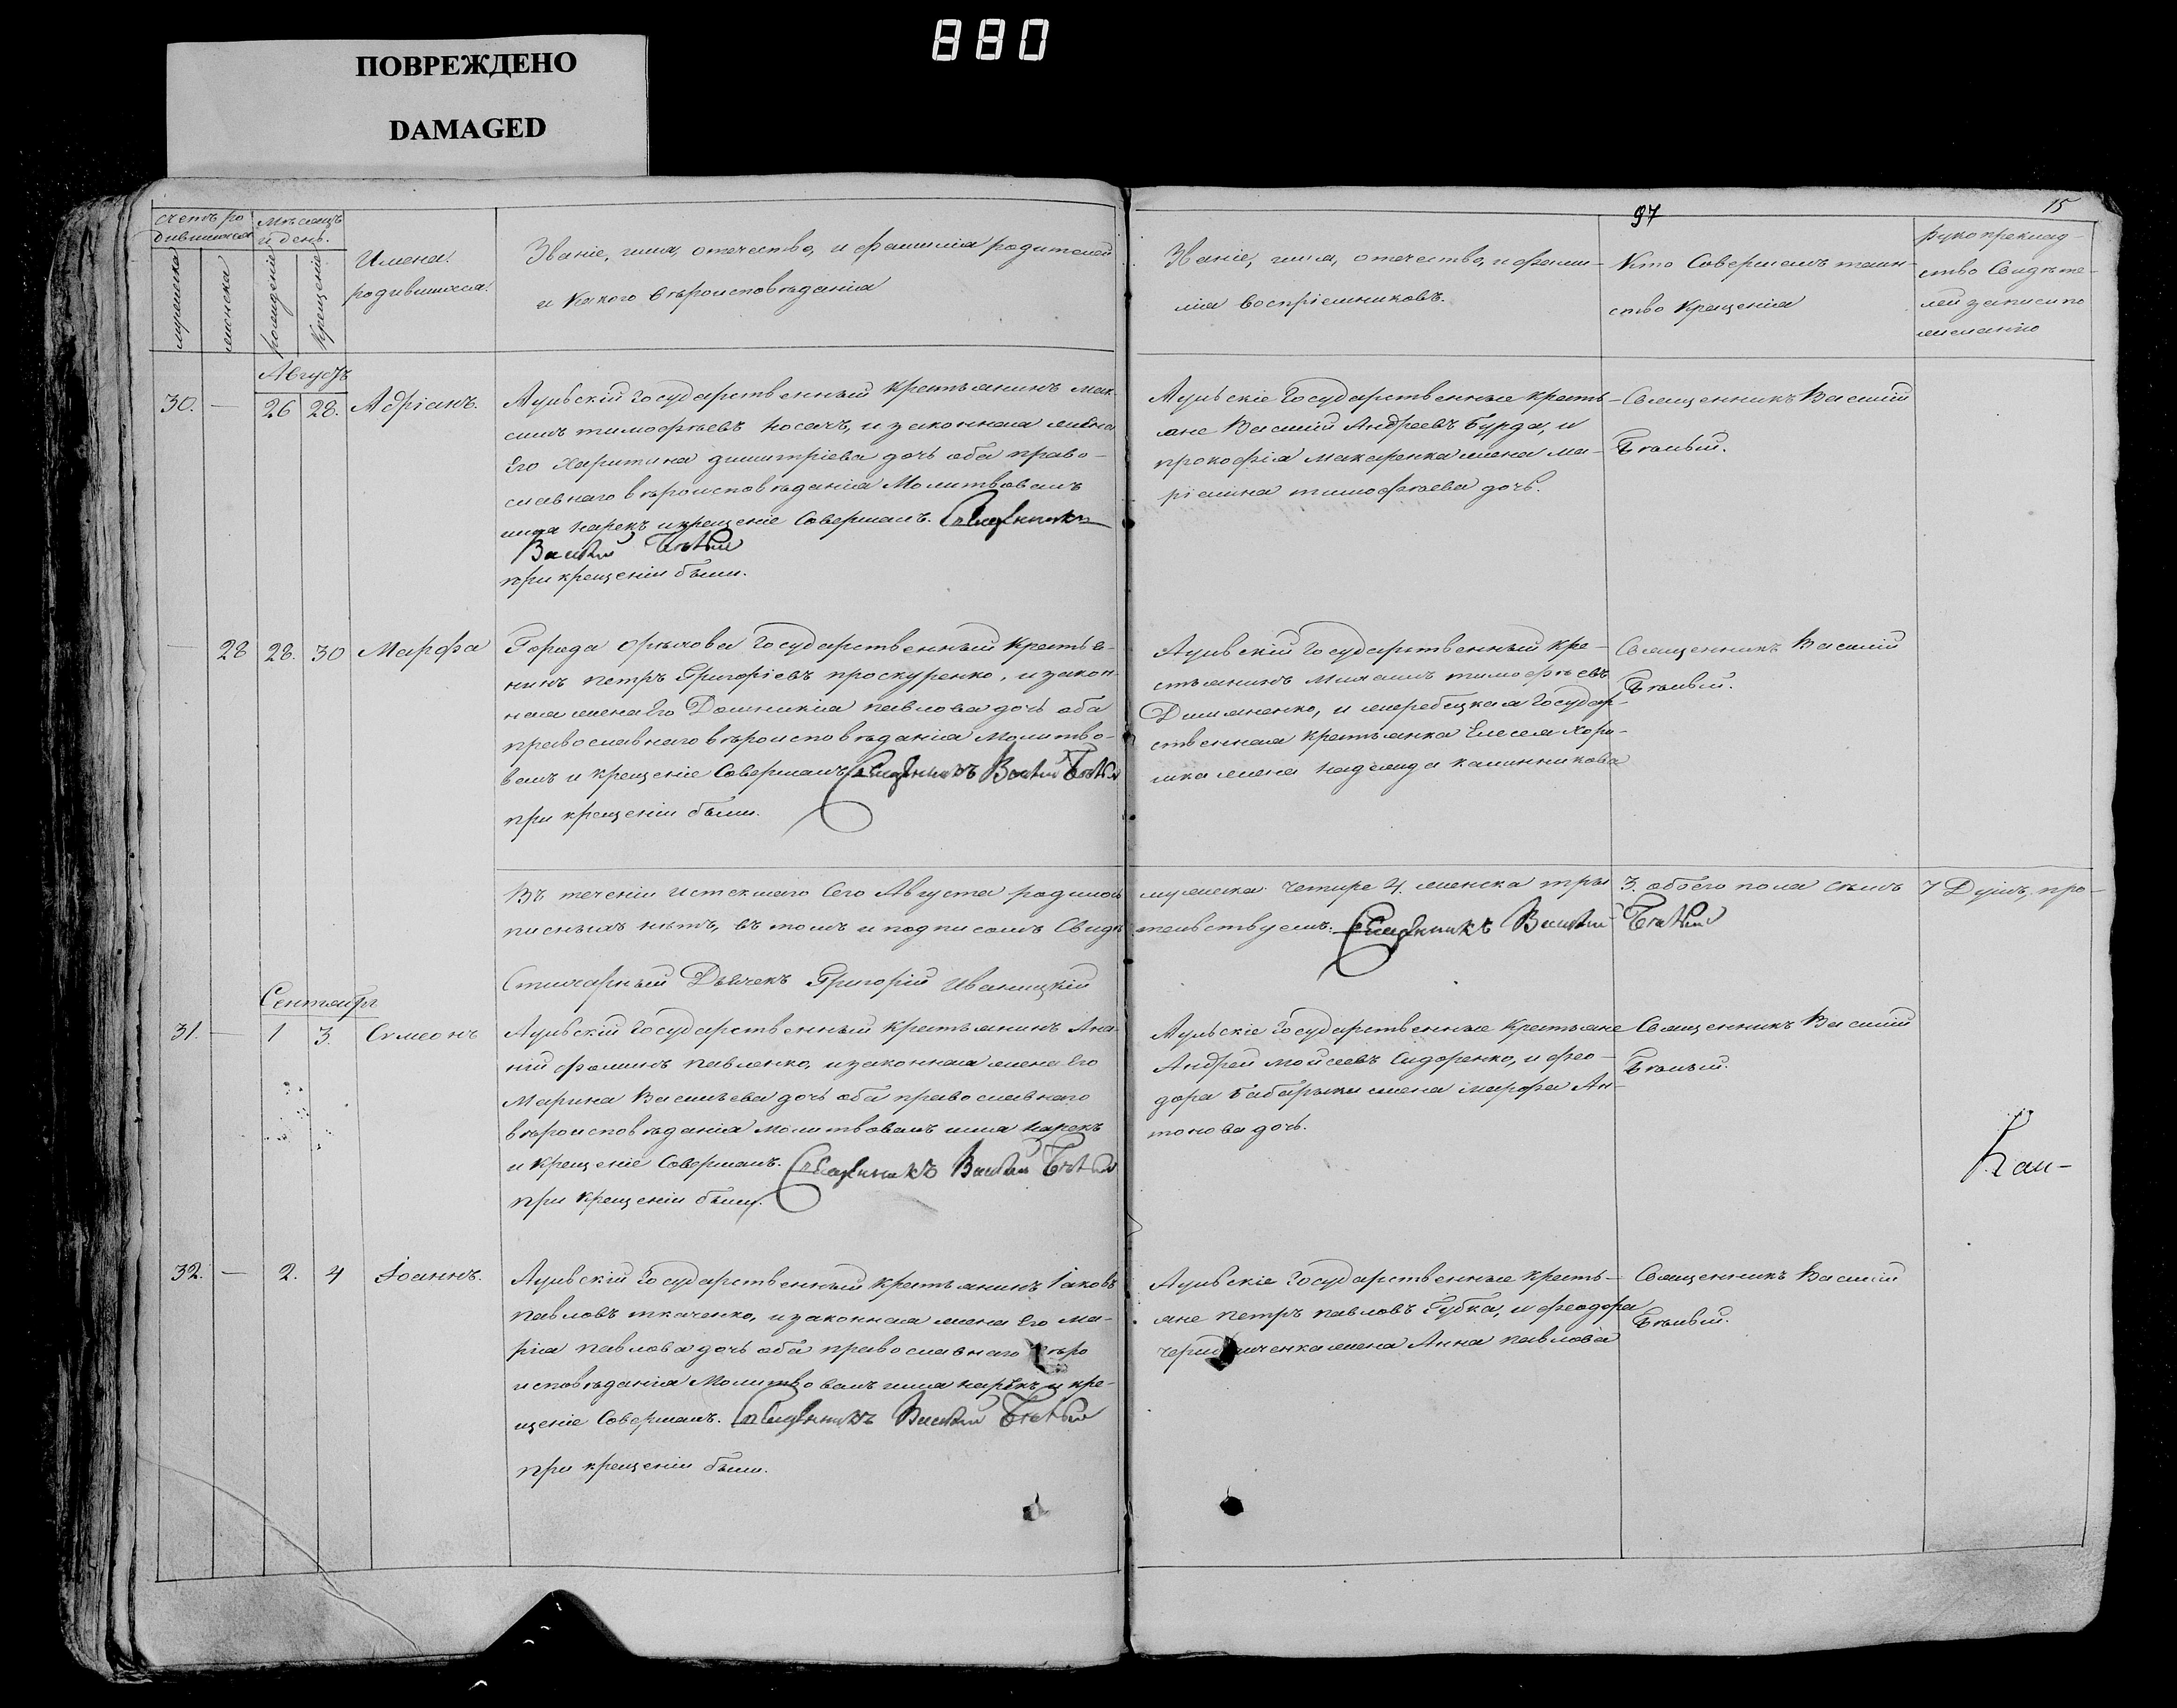 880
ПОВРЕЖДЕНО
DAMAGED
97
15
счетъ ро
дившихся
мужеска
женска
Мѣсяцъ
и день.
рожденіе
Крещеніе
Имена
родившихся.
Званіе, имя, отечество, и фамилія родителей
и Какого вѣроисповѣданія
Званіе, имя, отечество, и фами-
лія воспріемниковъ.
Кто Совершалъ таин-
ство Крещенія
рукоприклад-
ство Свидѣте-
лей записи по
желанію
Августъ
30. — 26 28. Адріанъ.
Аульскій Государственный крестьянинъ Мак-
симъ тимофѣевъ Носачъ, и законная жена
Его Харитина димитріева дочь оба право-
славнаго вѣроисповѣданія Молитвовалъ
имя Нарекъ и крещеніе Совершалъ. Священникъ
Василій Бѣлый
при крещеніи были.
Аульскіе Государственные кресть-
яне Василій Андреевъ Бурда, и
прокофія макаренка жена Ма-
ріамна тимофѣева дочь.
Священникъ Василій
Бѣлый.
— 28 28. 30 Марфа
Города Орѣхова Государственный Крестья-
нинъ петръ Григоріевъ проскуренко, и закон-
ная жена Его Домникія павлова дочь оба
православнаго вѣроисповѣданія Молитво-
валъ и крещеніе Совершалъ Священникъ Василій Бѣлый
при крещеніи были.
Аульскій Государственный Кре-
стьянинъ Михаилъ тимофѣевъ
Димяненко, и жеребецкая Государ-
ственная Крестьянка Елесея Хоро-
шка жена надежда калинникова
Священникъ Василій
Бѣлый.
Въ теченіи истекшаго Сего Августа родилось мужеска четире 4. женска тры 3. обоего пола сѣмь 7 Душъ, про-
писныхъ нѣтъ, въ томъ и подписомъ Свидѣтельствуемъ. Священникъ Василій Бѣлый
Стихарный Дьячекъ Григорій Иваницкій
Сентябр
31. — 1 3. Симеонъ
Аульскій Государственный Крестьянинъ Ана-
ній фоминъ павленко, и законная жена Его
Марина Васильева дочь оба православнаго
вѣроисповѣданія Молитвовалъ имя Нарекъ
и Крещеніе Совершалъ. Священникъ Василій Бѣлый
при Крещеніи были.
Аульскіе Государственные Крестьяне
Андрей Мойсеевъ Сидоренко, и фео-
дора Бабарыки жена Марфа Ан-
тонова дочь.
Священникъ Василій
Бѣлый.
32. — 2. 4 Іоаннъ.
Аульскій Государственный крестьянинъ Іаковъ
павловъ ткаченко, и законная жена Его Ма-
рія павлова дочь оба православнаго вѣро
исповѣданія Молитвовалъ имя нарекъ и кре-
щеніе Совершалъ. Священникъ Василій Бѣлый
при крещеніи были.
Аульскіе Государственные Кресть-
яне петръ павловъ Губка, и феодора
жена Анна павлова
Священникъ Василій
Бѣлый.